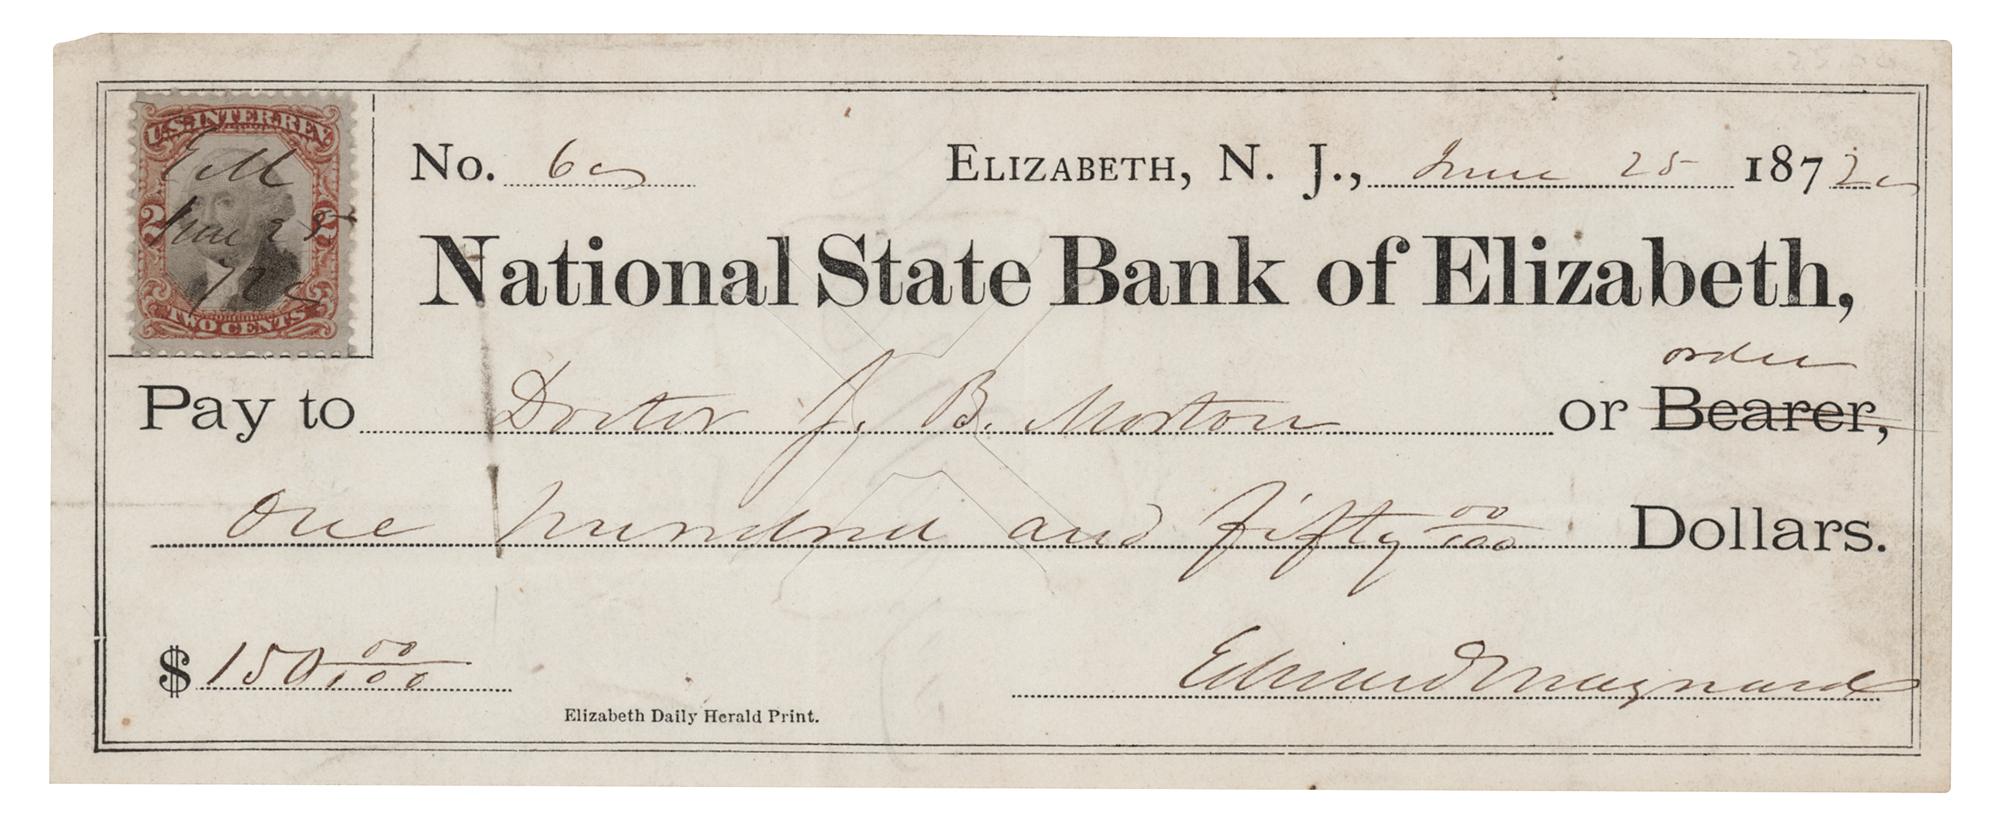 U.S. INTER. REV.
E M
June 25
2 2
72
TWO CENTS
No. 6 ELIZABETH, N. J., June 25 1872
National State Bank of Elizabeth,
order
Pay to Doctor J. B. Morton or Bearer,
One hundred and fifty 00/100 Dollars.
$ 150,00/100 Edward Maynard
Elizabeth Daily Herald Print.